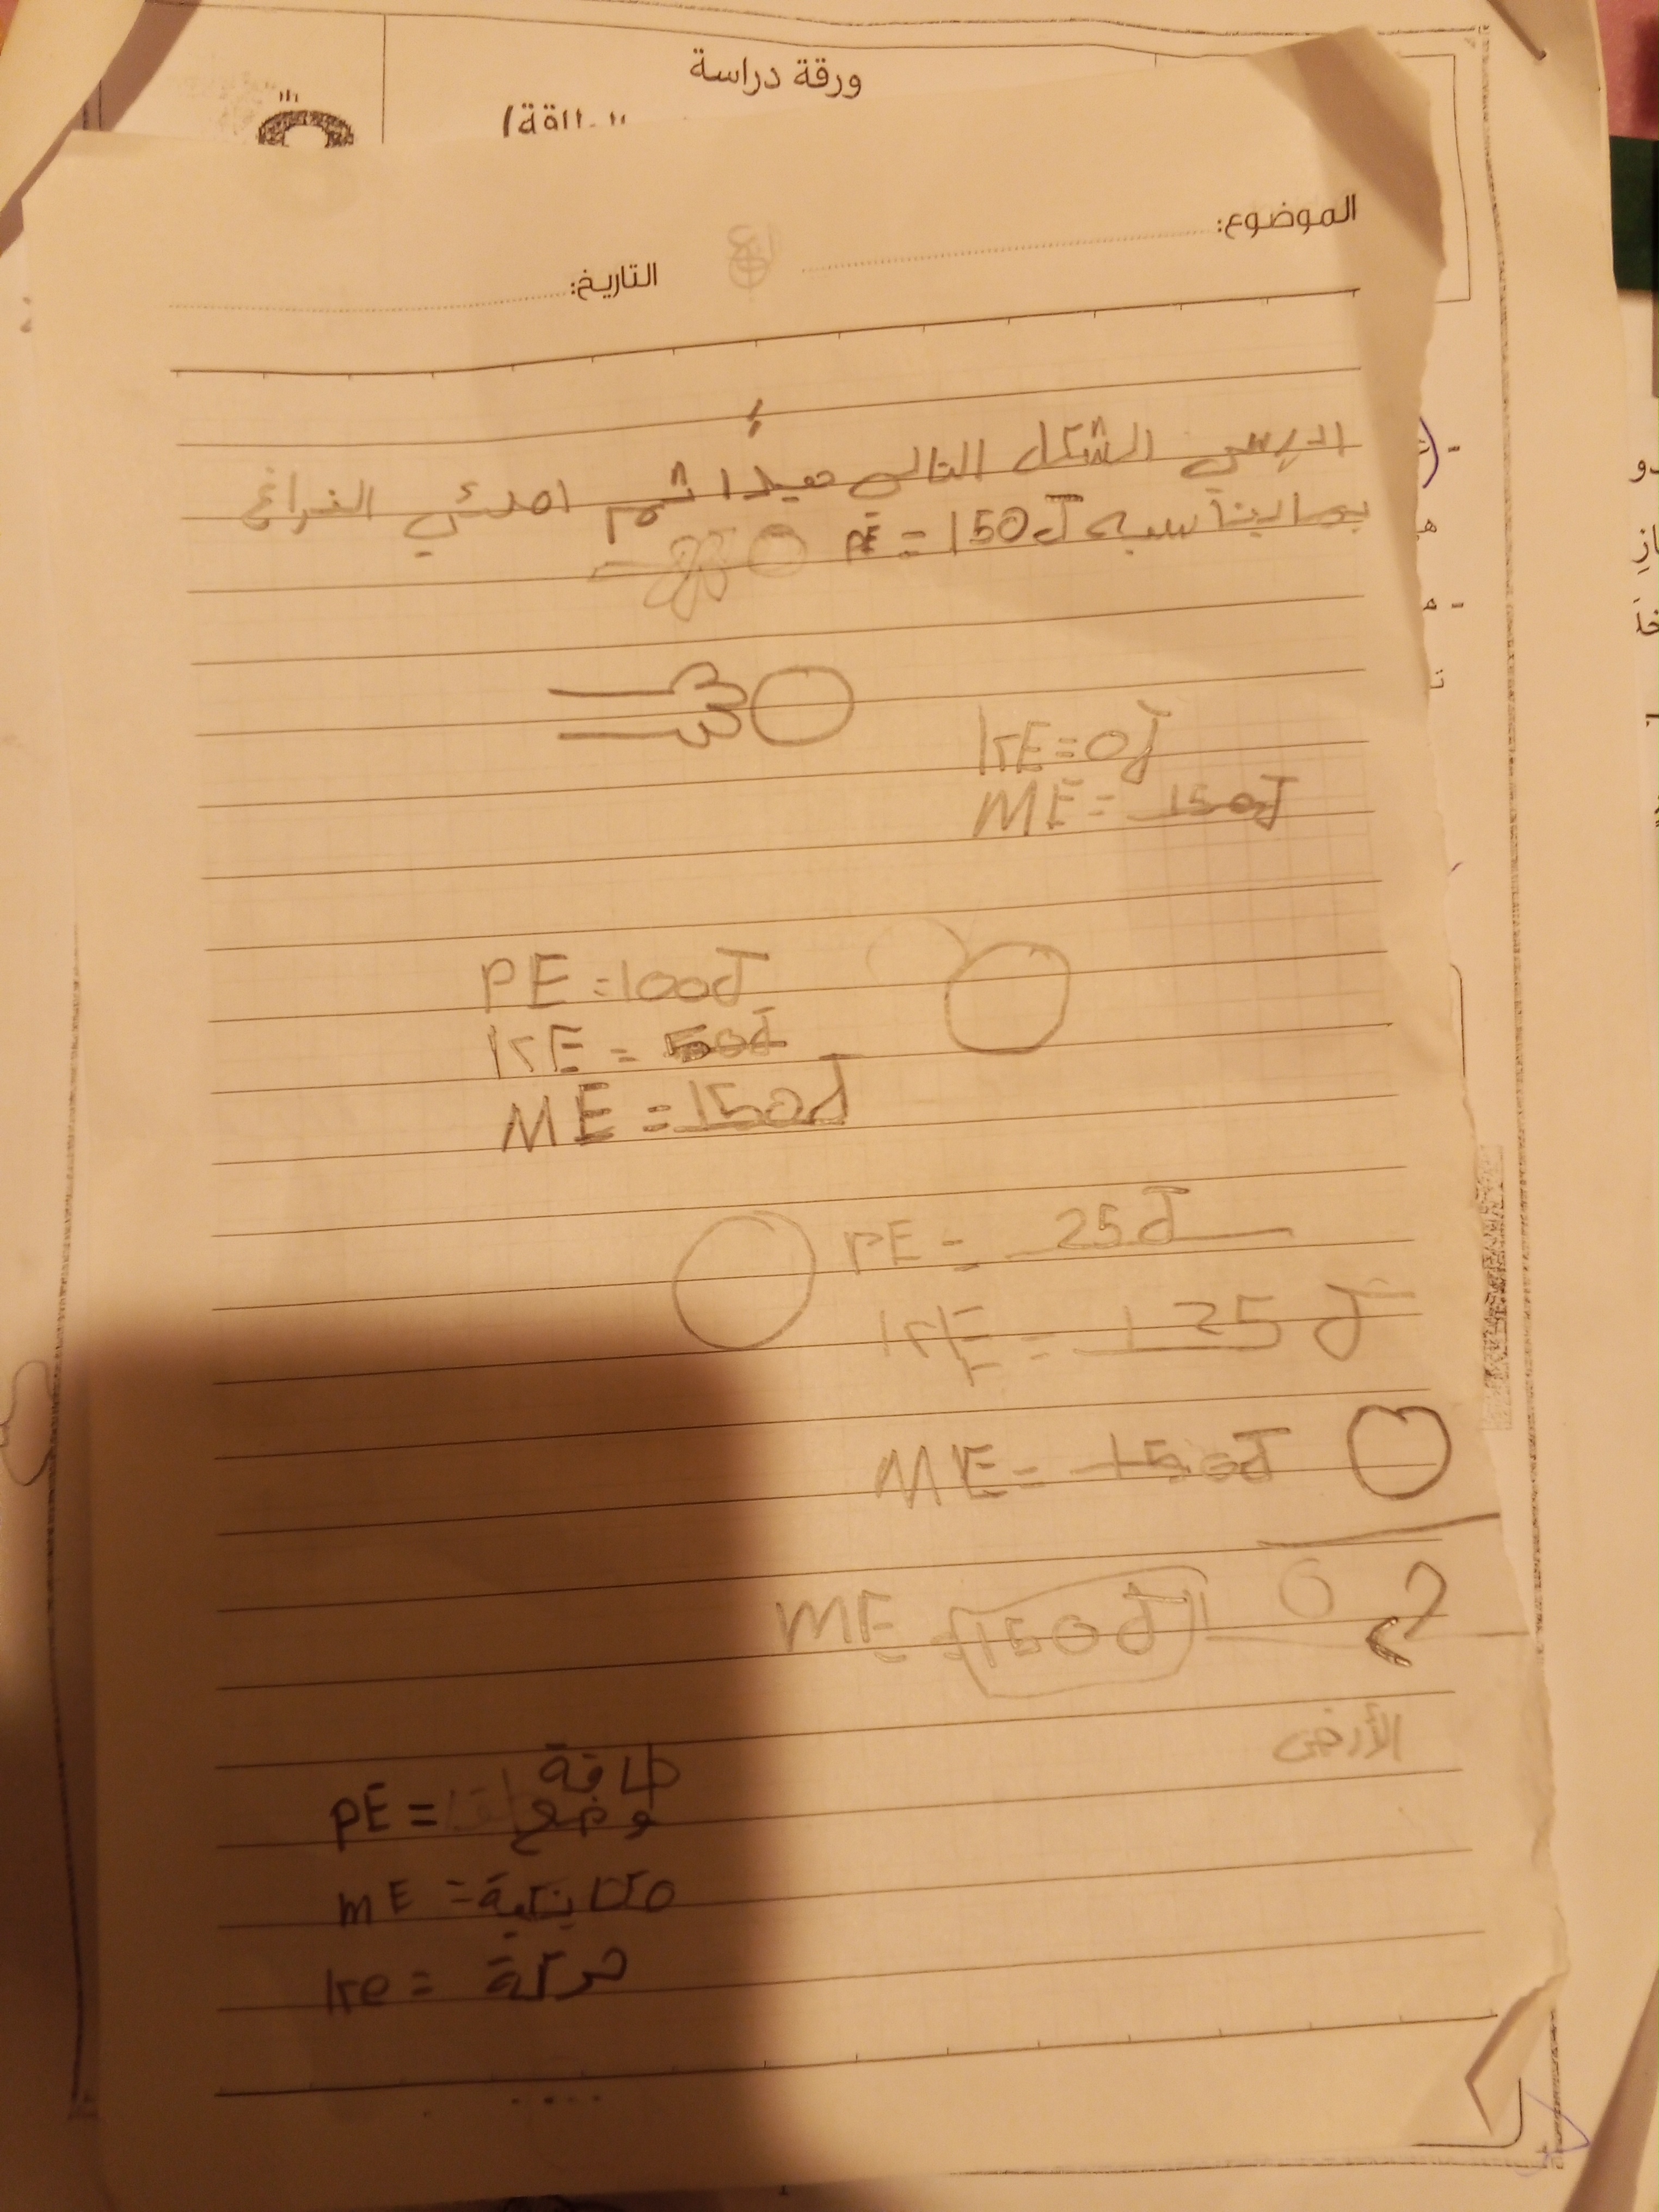 ورقة دراسة
الموضوع:
التاريخ:
ادرسي الشكل التالي جيدا ثم املئي الفراغ
بما يناسبه PE = 150J
KE = 0J
ME = 150J
PE = 100J
KE = 50J
ME = 150J
PE = 25J
KE = 125J
ME = 150J
ME = 150J
الأرض
PE = طاقة وضع
mE = مكانيكية
ke = حركة